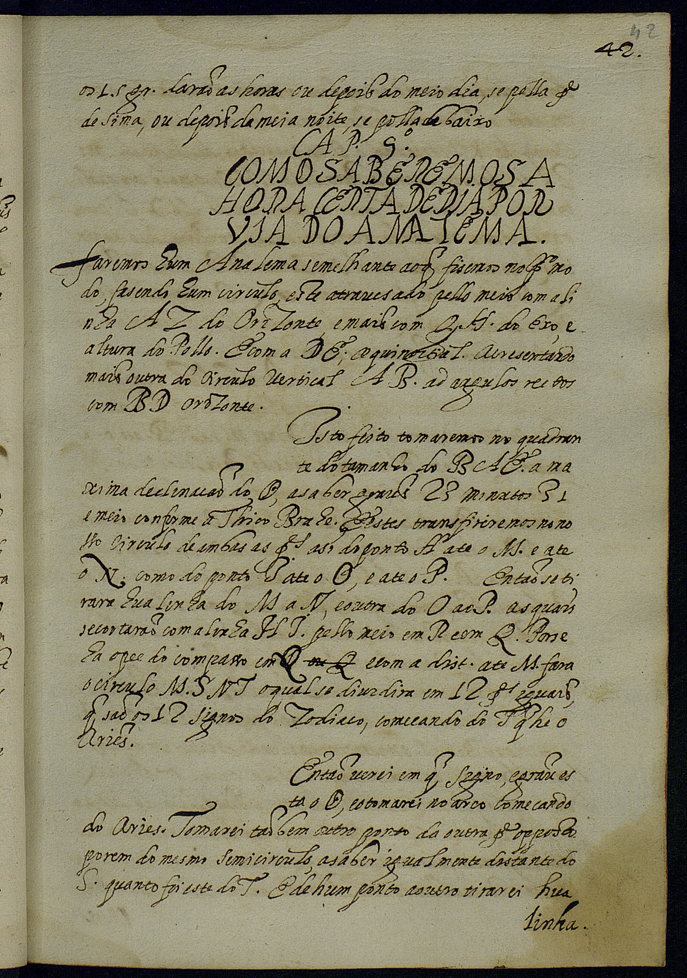 42
42.
os 15 gr. darão as horas ou depois do meio dia, se pella p.te
de sima, ou depois da meia noite, se polla de baixo
CAP. 9.º
COMO SABEREMOS A
HORA CERTA DE DIA POR
VIA DO ANALEMA.
Faremos hum Analema semelhante ao q̃ fisemos no
do, fasendo hum circulo, este atravesado pello meio com a li
nha AZ do Orizonte, e mais com do Exo e
altura do Pollo. E com a DE; æquinoctial. Acresentando
mais outra do Circulo Vertical AB. ad angulos rectos
com BD Orizonte.
Isto feito tomaremos no quadran
te do tamanho do BAE. a ma
xima declinação do, a saber graos 23 minutos 31
e meio conforme a Thico Brahe. E estes transfiriremos no no
sso circulo de ambas as p.tes asi do ponto H ate o M. e ate
o N. como do ponto I ate o O, e ate o P. Então se ti
rara hua linha do M a N, e outra do O ao P. as quais
se cortarão com a linha HI. pello meio em R e em Q. Porse
ha o pee do compasso em Q e com a dist. ate M. fara
o circulo M.S.N.T o qual se dividira em 12 p.tes iguais,
q̃ são os 12 signos do Zodiaco, comeando do T q̃ he o
Aries.
Então verei em q̃ signo, e grau es
ta o, e o tomarei no arco comecando
do Aries. Tomarei tãobem outro ponto da outra p.te opposta
porem do mesmo semicirculo, a saber igualmente distante do
S. quanto foi este do T. E de hum ponto a outro tirarei hua
linha.